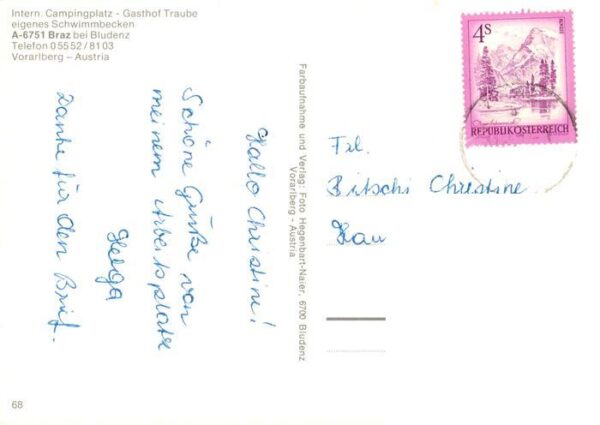 Intern. Campingplatz - Gasthof Traube
eigenes Schwimmbecken
A-6751 Braz bei Bludenz
Telefon 05552/8103
Vorarlberg – Austria
Hallo Christine!
Schöne Grüße von
meinem Arbeitsplatz
Helga
Danke für den Brief.
Farbaufnahme und Verlag: Foto Hegenbart-Naier, 6700 Bludenz
Vorarlberg - Austria
4S
REPUBLIK ÖSTERREICH
Frl.
Bitschi Christine
68